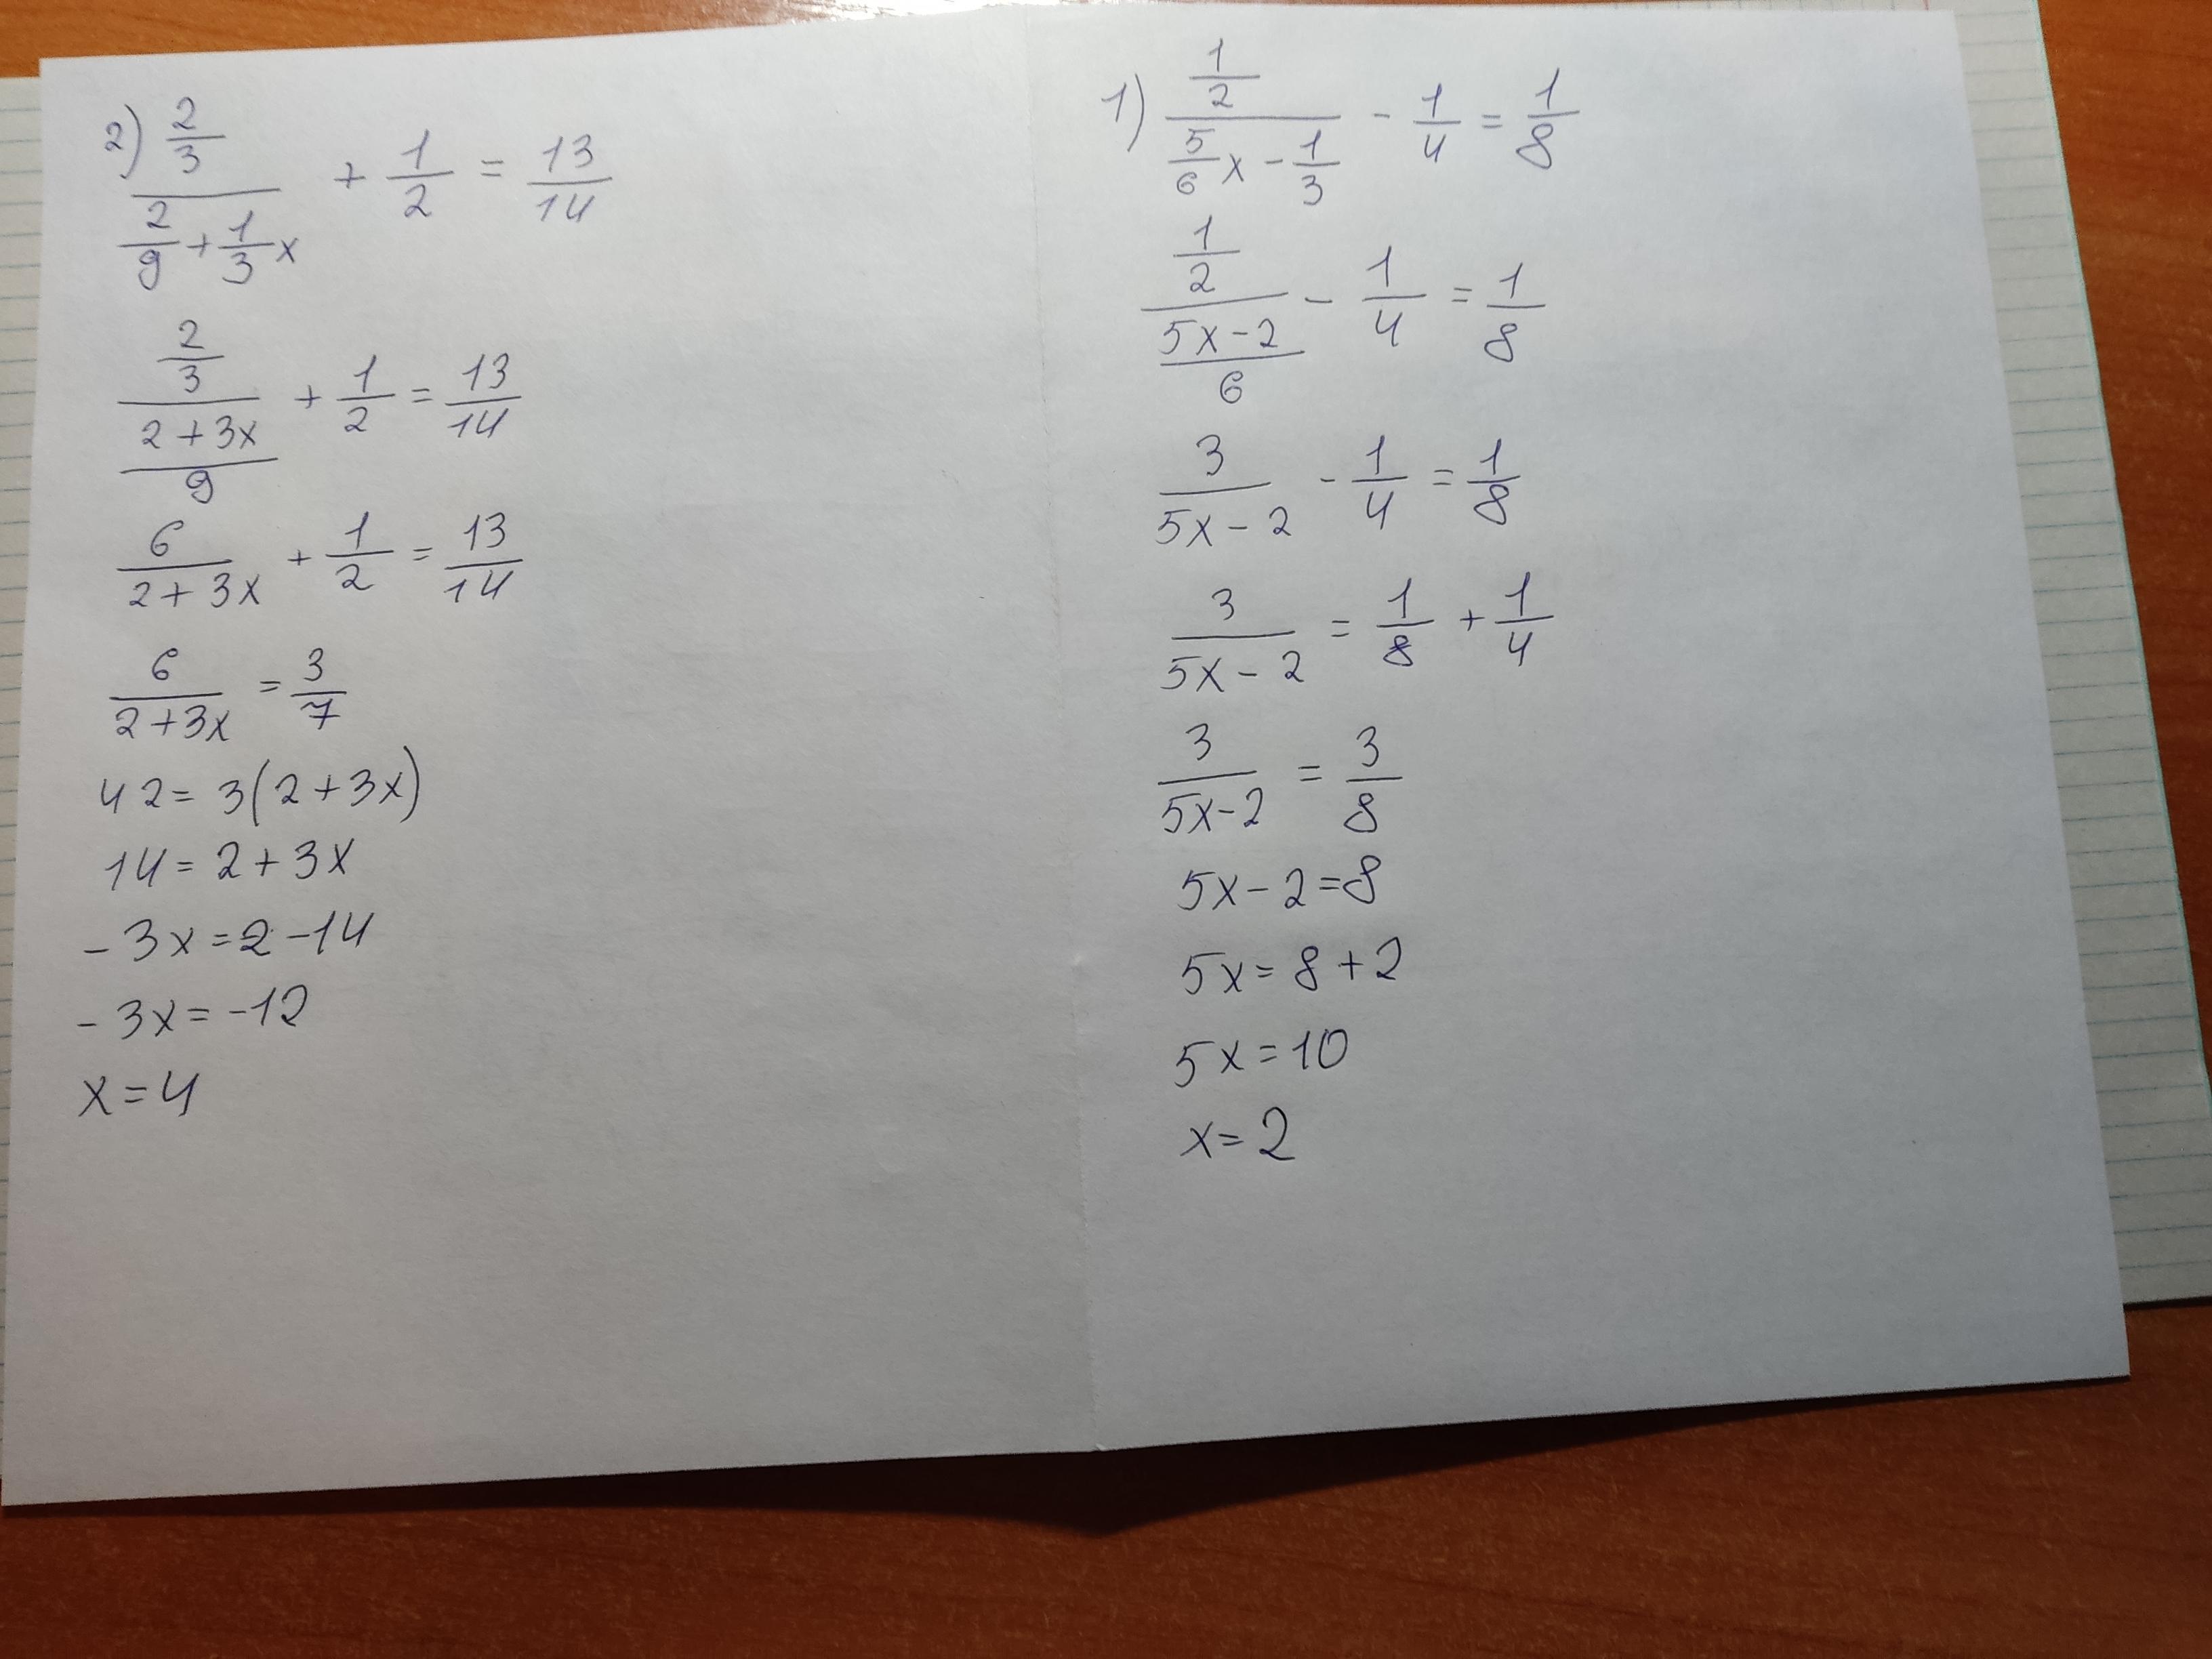 2) \frac{\frac{2}{3}}{\frac{2}{9}+\frac{1}{3}x} + \frac{1}{2} = \frac{13}{14}
\frac{\frac{2}{3}}{\frac{2+3x}{9}} + \frac{1}{2} = \frac{13}{14}
\frac{6}{2+3x} + \frac{1}{2} = \frac{13}{14}
\frac{6}{2+3x} = \frac{3}{7}
42 = 3(2+3x)
14 = 2+3x
-3x = 2-14
-3x = -12
x = 4
1) \frac{\frac{1}{2}}{\frac{5}{6}x-\frac{1}{3}} - \frac{1}{4} = \frac{1}{8}
\frac{\frac{1}{2}}{\frac{5x-2}{6}} - \frac{1}{4} = \frac{1}{8}
\frac{3}{5x-2} - \frac{1}{4} = \frac{1}{8}
\frac{3}{5x-2} = \frac{1}{8} + \frac{1}{4}
\frac{3}{5x-2} = \frac{3}{8}
5x-2 = 8
5x = 8+2
5x = 10
x = 2